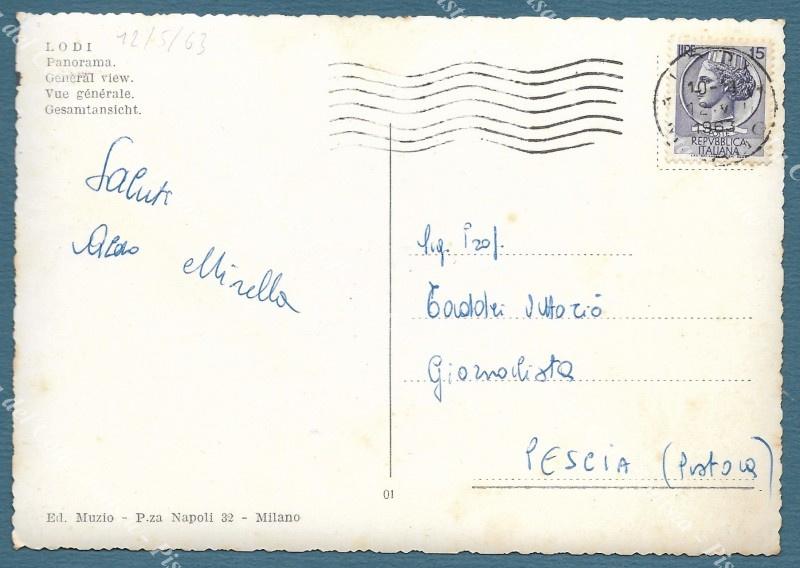 LODI
Panorama.
General view.
Vue générale.
Gesamtansicht.
12/5/63
LIRE 15
REPVBBLICA
ITALIANA
10-14
1963
Saluti
Aldo Mirella
Sig. Prof.
Taddei Vittorio
Giornalista
PESCIA (Pistoia)
01
Ed. Muzio - P.za Napoli 32 - Milano